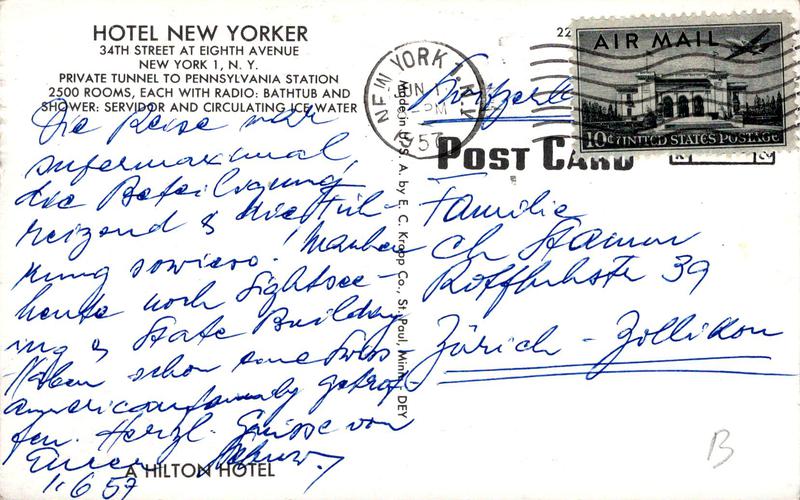 HOTEL NEW YORKER
34TH STREET AT EIGHTH AVENUE
NEW YORK 1, N. Y.
PRIVATE TUNNEL TO PENNSYLVANIA STATION
2500 ROOMS, EACH WITH RADIO: BATHTUB AND
SHOWER: SERVIDOR AND CIRCULATING ICE WATER
Die Reise
supermaximal,
die Beteiligung
reizend & die Füh-
rung sowieso!
heute noch Sightsee-
ing & State Building
Haben schon eine Swiss
americanfamily getrof-
fen. Herzl. Grüsse von
Euren
1. 6 57
A HILTON HOTEL
Made in U. S. A. by E. C. Kropp Co., St. Paul, Minn. DEY
22
NEW YORK 1, N.Y.
JUN 1
PM
1957
AIR MAIL
10¢ UNITED STATES POSTAGE
POST CARD
Familie
Ch Stamm
39
Zürich - Zollikon
B